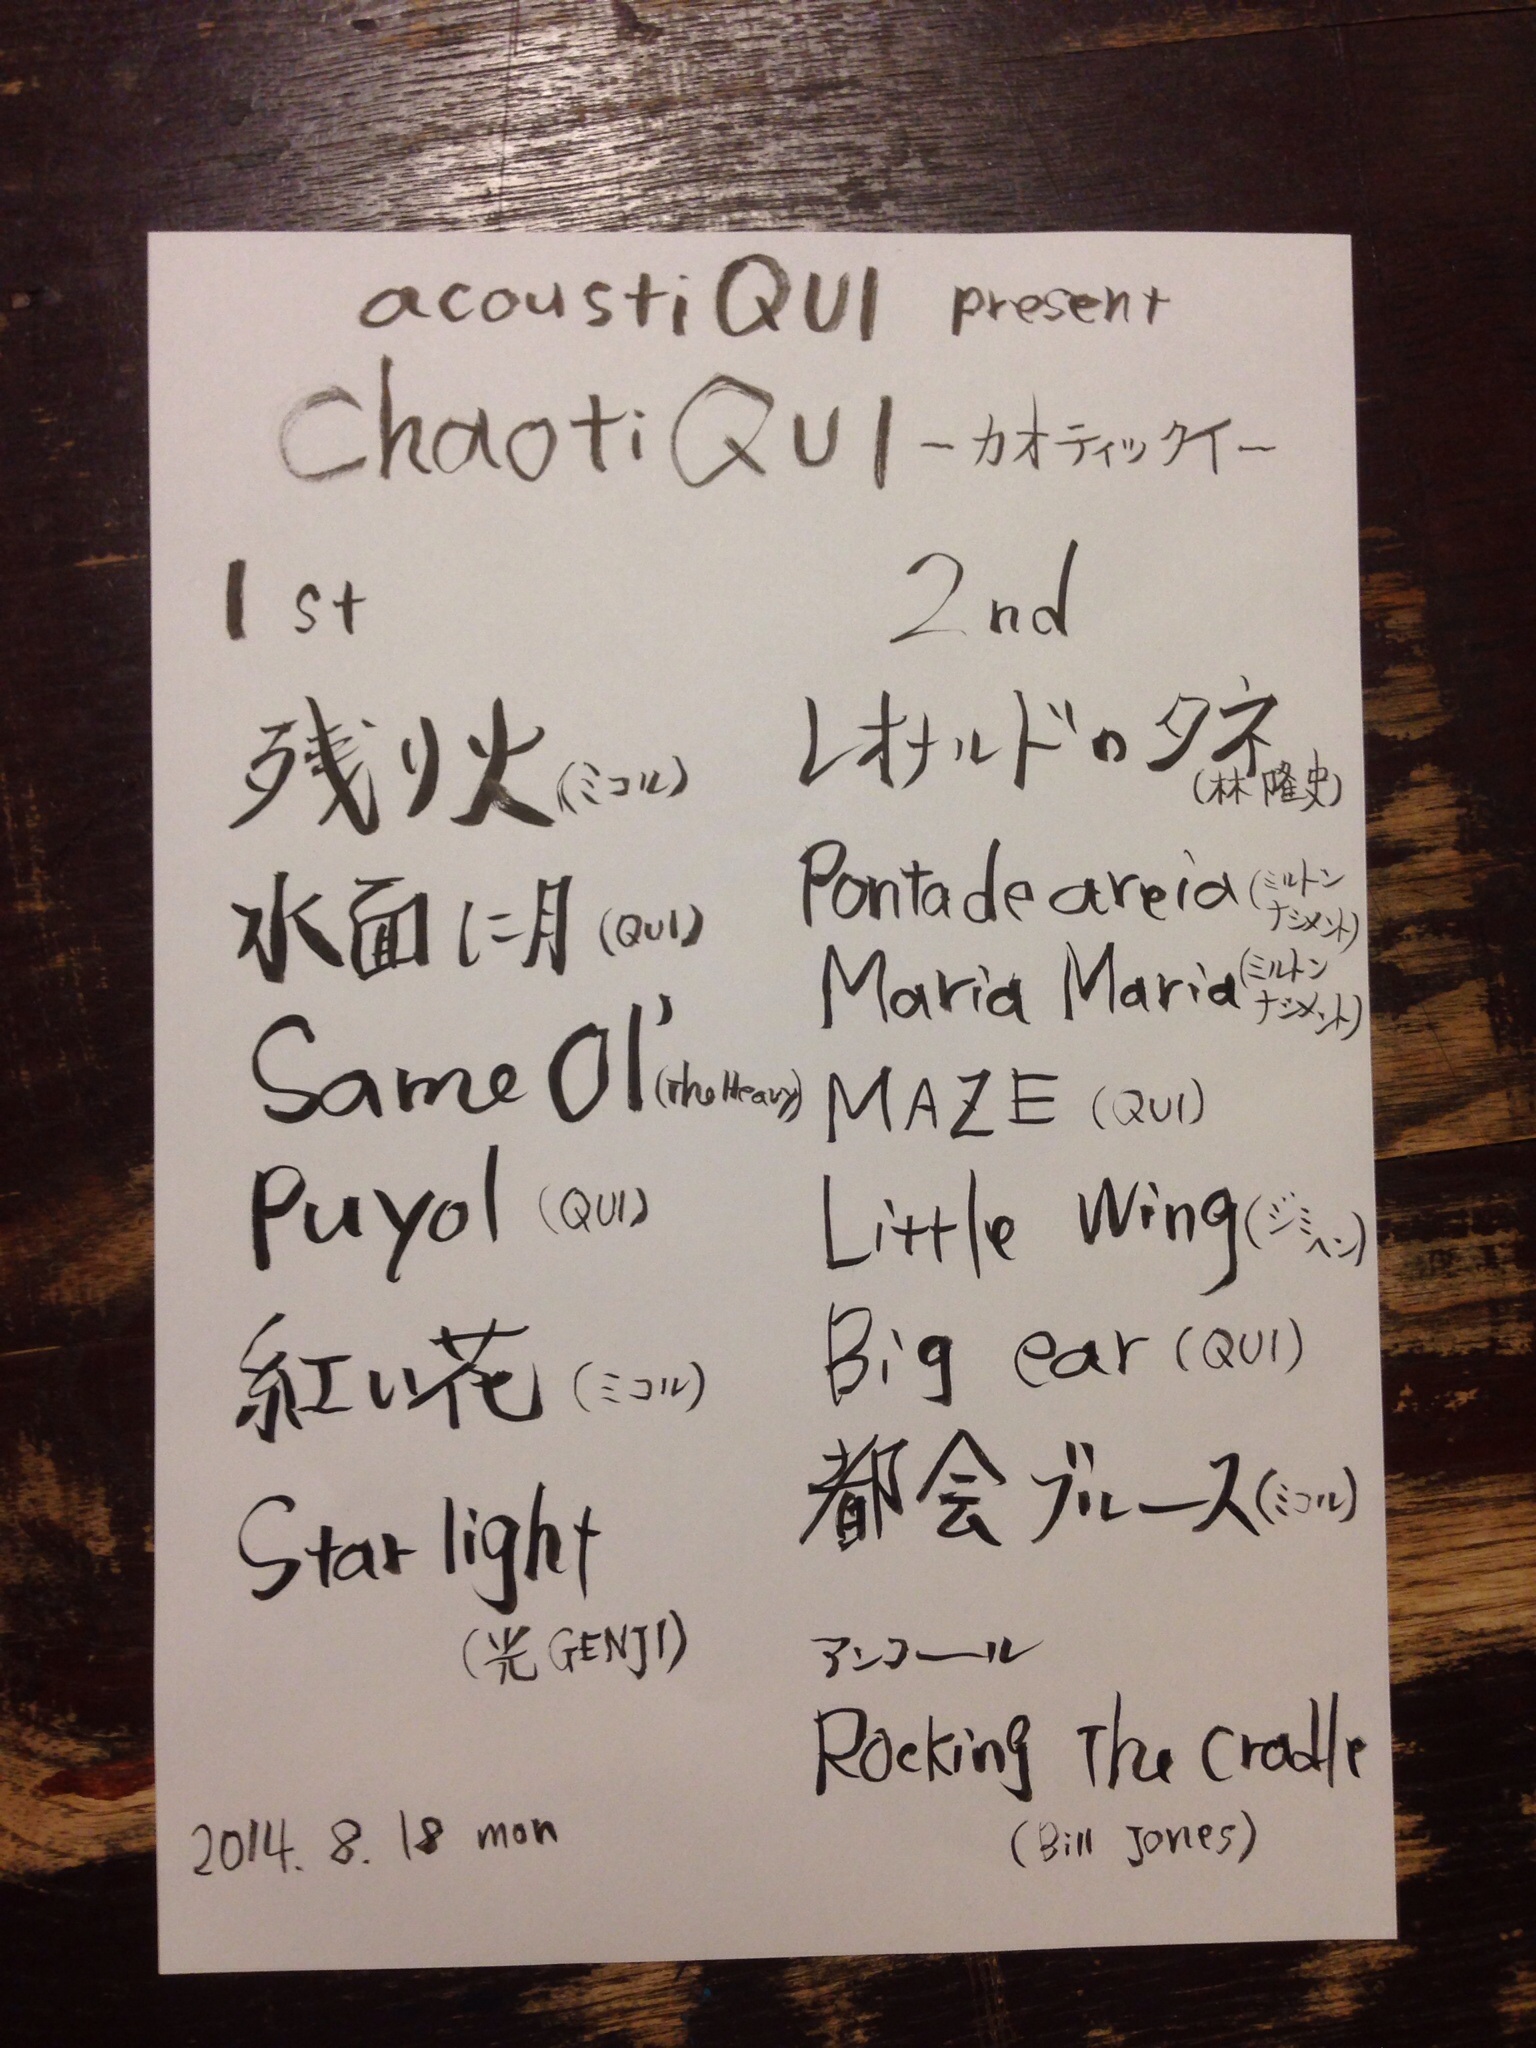 acoustiQUI present
ChaotiQUI ~カオティックイ~
1st
残り火(ミコル)
水面に月(QUI)
Same Ol'(The Heavy)
Puyol (QUI)
紅い花(ミコル)
Star light
(光GENJI)
2014. 8. 18 mon
2nd
レオナルドのタネ
(林 隆史)
Ponta de areia(ミルトン
ナシメント)
Maria Maria(ミルトン
ナシメント)
MAZE (QUI)
Little Wing(ジミ
ヘン)
Big ear (QUI)
都会ブルース(ミコル)
アンコール
Rocking The Cradle
(Bill Jones)